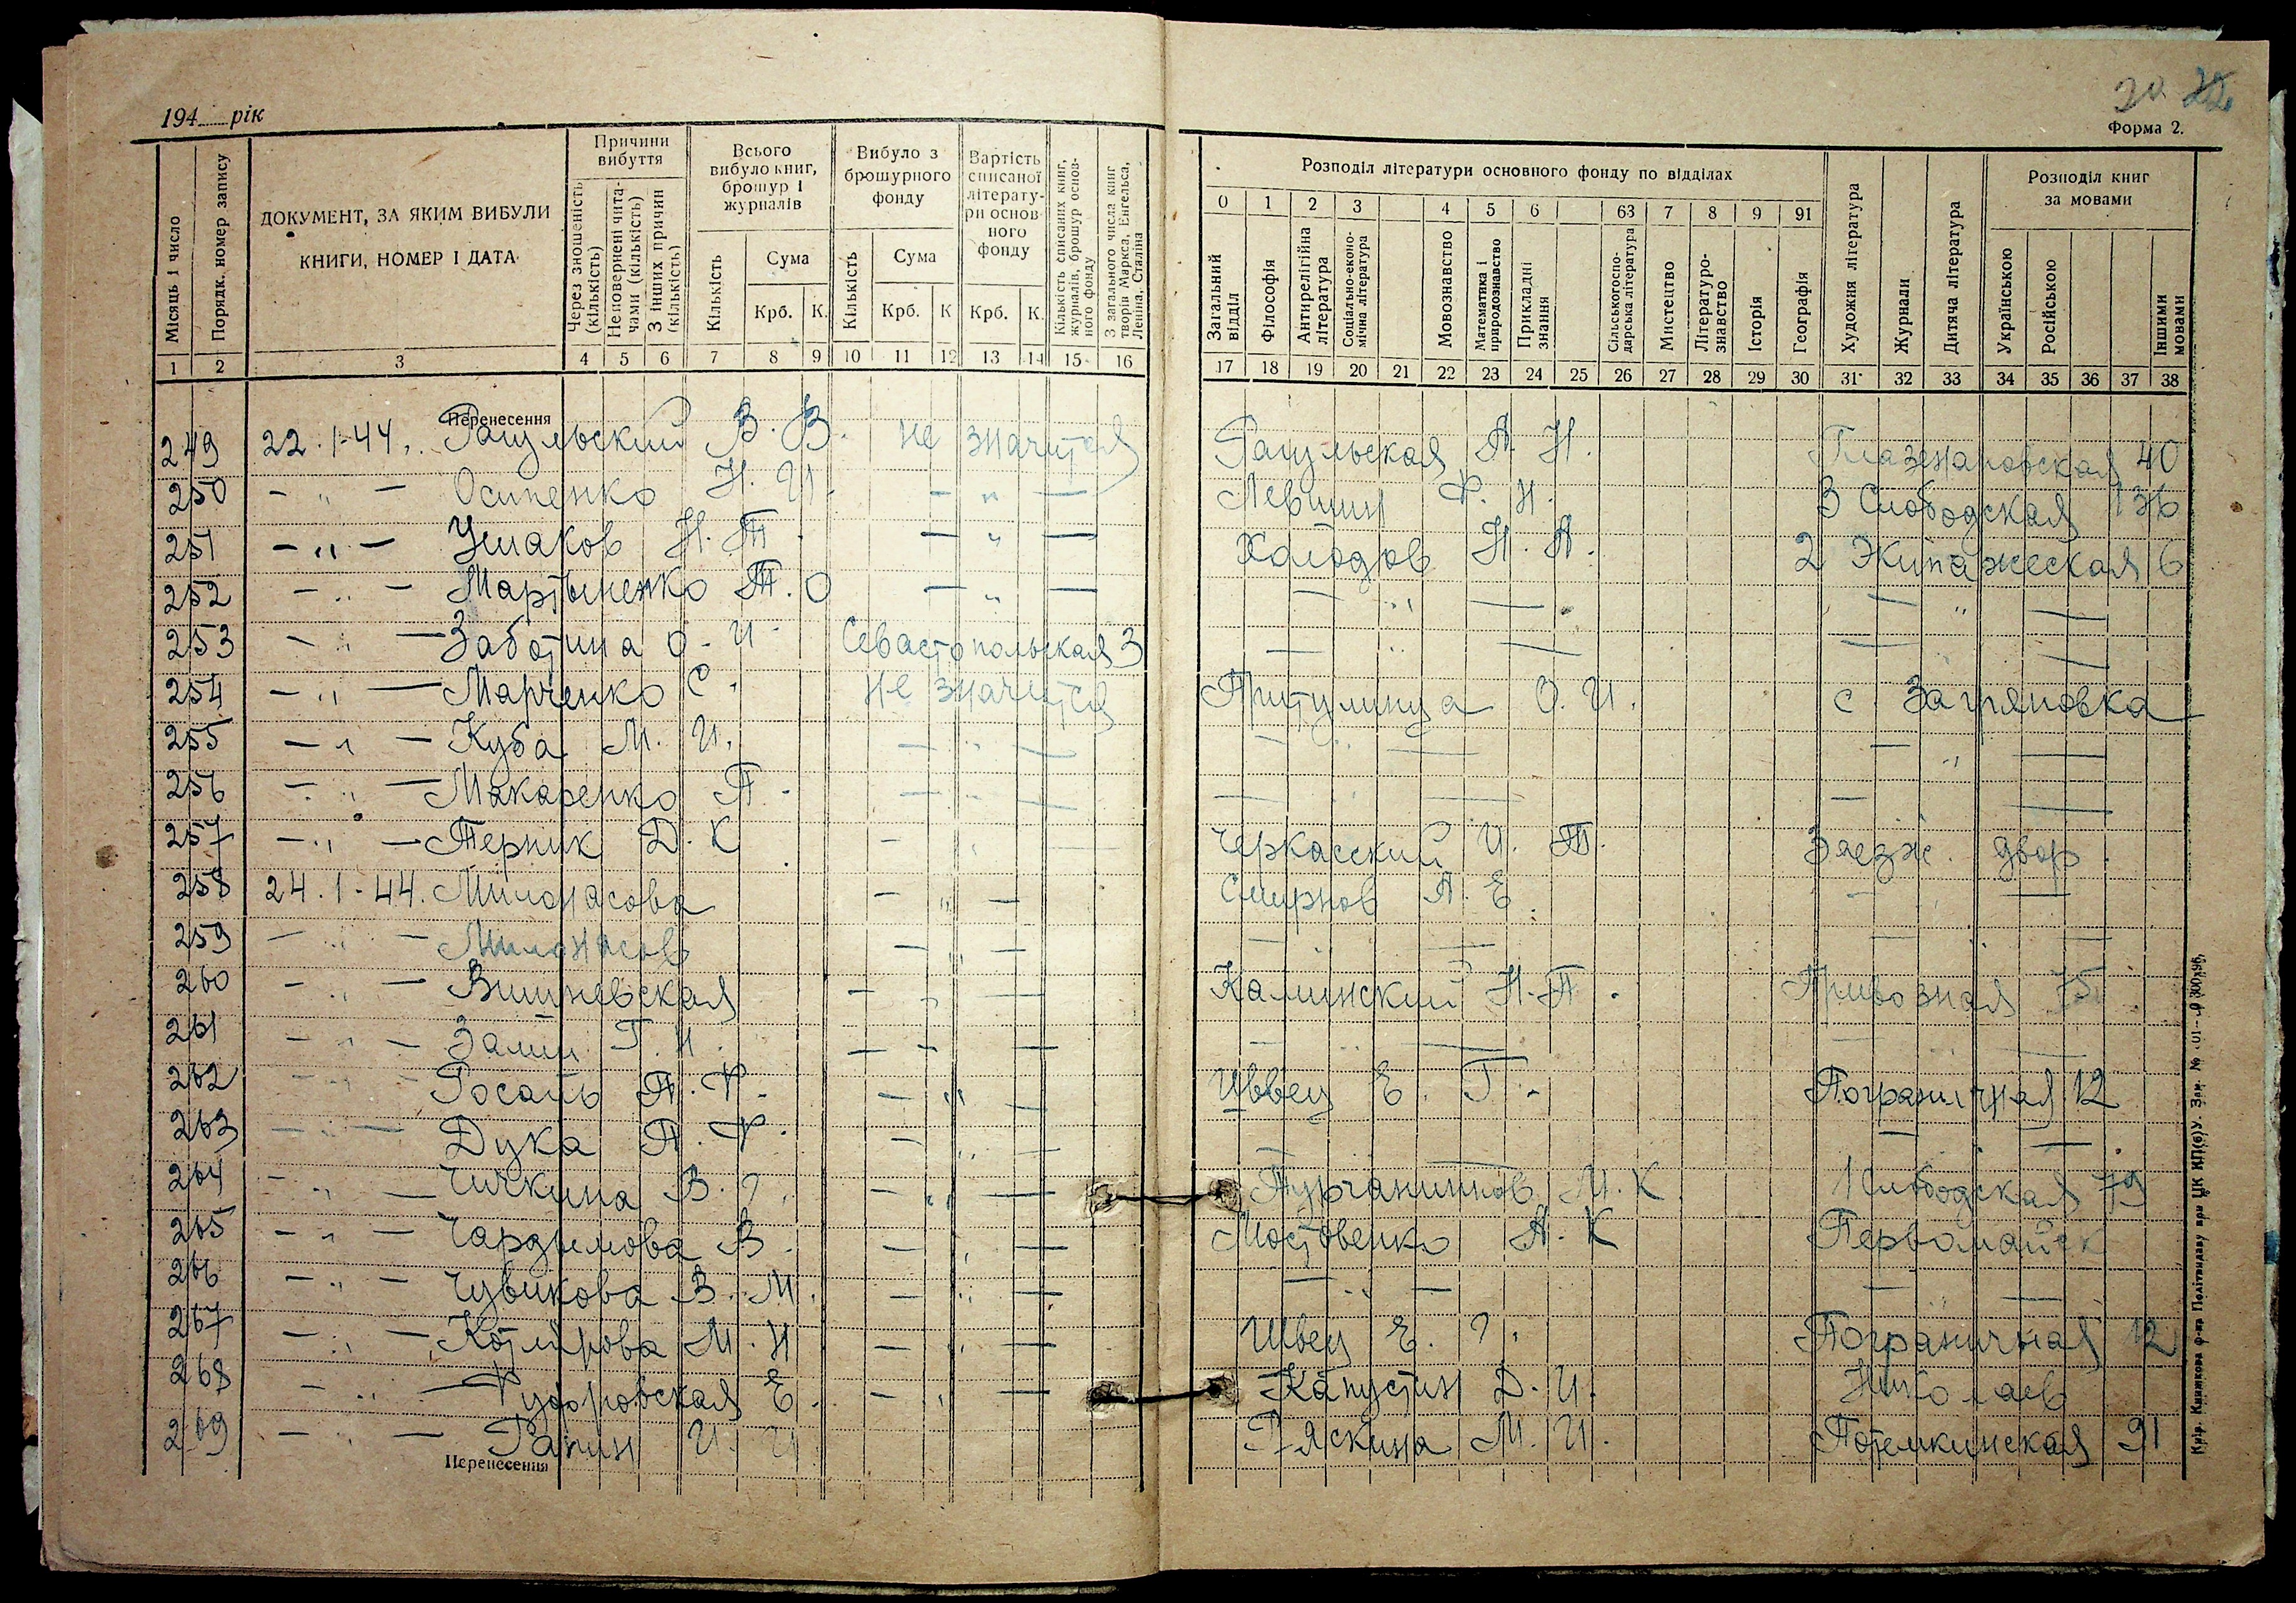 194 рік
20 22
Форма 2.
Місяць і число
Порядк. номер запису
ДОКУМЕНТ, ЗА ЯКИМ ВИБУЛИ
КНИГИ, НОМЕР І ДАТА
Причини вибуття
Через зношеність (кількість)
Неповернені читачами (кількість)
З інших причин (кількість)
Всього вибуло книг, брошур і журналів
Кількість
Сума
Крб. К.
Вибуло з брошурного фонду
Кількість
Сума
Крб. К
Вартість списаної літератури основного фонду
Крб. К.
Кількість списаних книг, журналів, брошур основного фонду
З загального числа книг творів Маркса, Енгельса, Леніна, Сталіна
Розподіл літератури основного фонду по відділах
0 1 2 3 4 5 6 63 7 8 9 91
Загальний відділ
Філософія
Антирелігійна література
Соціально-економічна література
Мовознавство
Математика і природознавство
Прикладні знання
Сільськогосподарська література
Мистецтво
Літературознавство
Історія
Географія
Художня література
Журнали
Дитяча література
Розподіл книг за мовами
Українською
Російською
Іншими мовами
1 2 3 4 5 6 7 8 9 10 11 12 13 14 15 16
17 18 19 20 21 22 23 24 25 26 27 28 29 30 31 32 33 34 35 36 37 38
Перенесення
249 22.1-44. Рацульский В. В. не значится Рацульская А. Н. Глазенаповская 40
250 - " - Осипенко Н. И. - " - Левшин Ф. Н. 3 Слободская 136
251 - " - Ушаков Н. Т. - " - Холодов Н. А. 2 Экипажеская 6
252 - " - Мартыненко Т. О - " - - " - - " -
253 - " - Заботина О. И. Севастопольская 3 - " - - " -
254 - " - Марченко С. не значится Притулица О. И. с. Загряновка
255 - " - Куба М. И. - " - - " - - " -
256 - " - Макаренко П. - " - - -
257 - " - Терник Д. К - " - Черкасский И. Т. Заезж. двор.
258 24.1-44. Милонасова - " - Смирнов А. Е. - " -
259 - " - Милонасов - " - - " - - " -
260 - " - Вишневская - " - Калинский Н. П. Привозная 75
261 - " - Г. Н. - " - - " - - -
262 - " - Росаль П. Ф. - " - Швец Е. Г. Пограничная 12
263 - " - Дука П. Ф. - " - - - - " -
264 - " - Чичкина В. ?. - " - М. К 1 Слободская 79
265 - " - В. - " - Мостовенко А. К Первомайск
266 - " - Чувикова В. М. - " - - " - - " -
267 - " - Котлярова М. Н - " - Швец Е. ?. Пограничная 12
268 - " - Е. - " - Капустин Д. И. Николаев
269 - " - И. И Ряскина М. И. Потемкинская 91
Перенесення